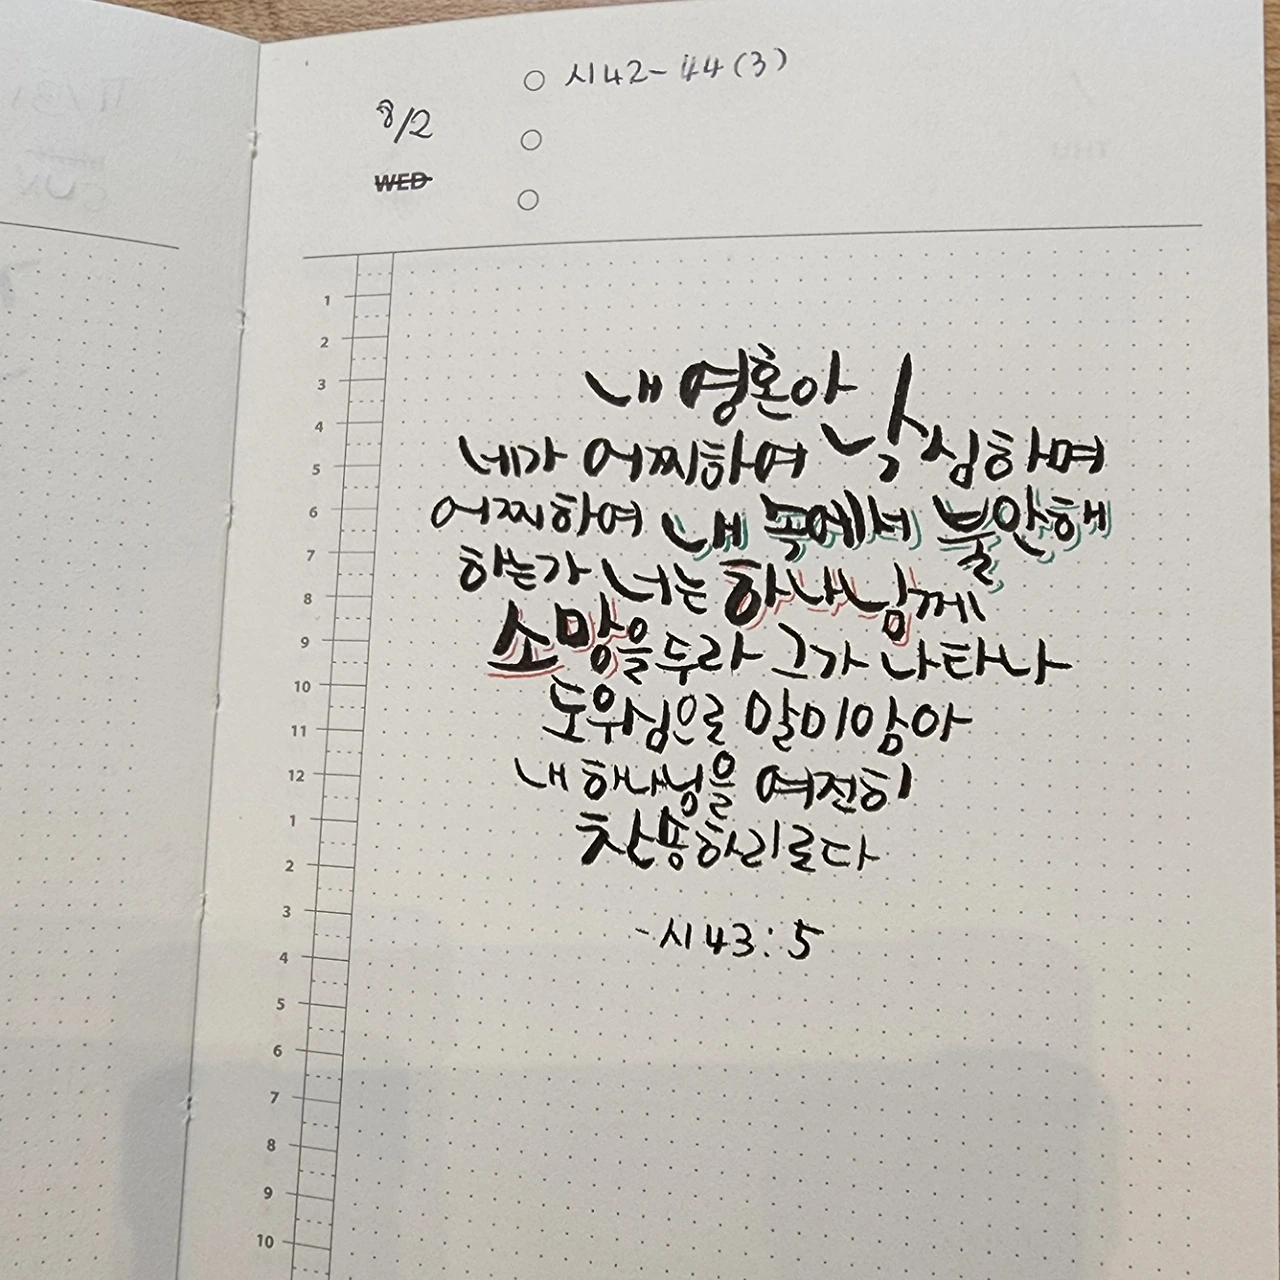 시42-44(3)
8/2
WED
1
2
3
4
5
6
7
8
9
10
11
12
1
2
3
4
5
6
7
8
9
10
내 영혼아
네가 어찌하여 낙심하며
어찌하여 내 속에서 불안해
하는가 너는 하나님께
소망을 두라 그가 나타나
도우심으로 말미암아
내 하나님을 여전히
찬송하리로다
-시43:5